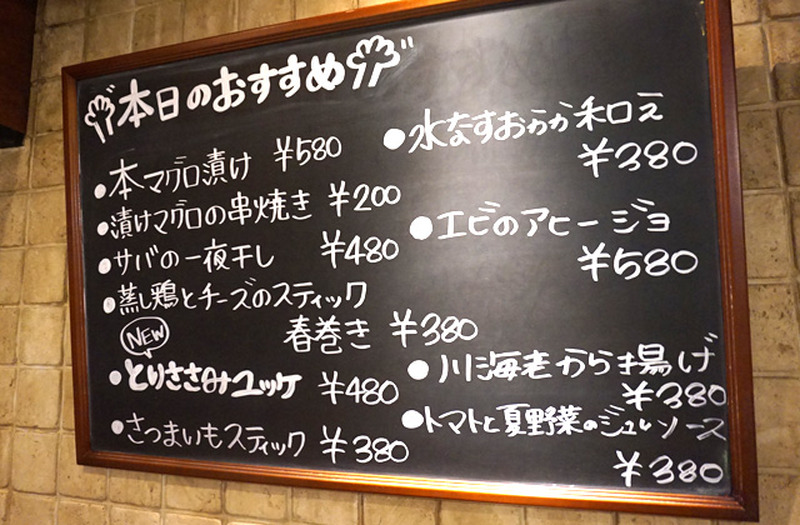 本日のおすすめ
●本マグロ漬け ¥580
●漬けマグロの串焼き ¥200
●サバの一夜干し ¥480
●蒸し鶏とチーズのスティック
春巻き ¥380
NEW
●とりささみユッケ ¥480
●さつまいもスティック ¥380
●水なすおかか和え
¥380
●エビのアヒージョ
¥580
●川海老から揚げ
¥380
●トマトと夏野菜のジュレソース
¥380